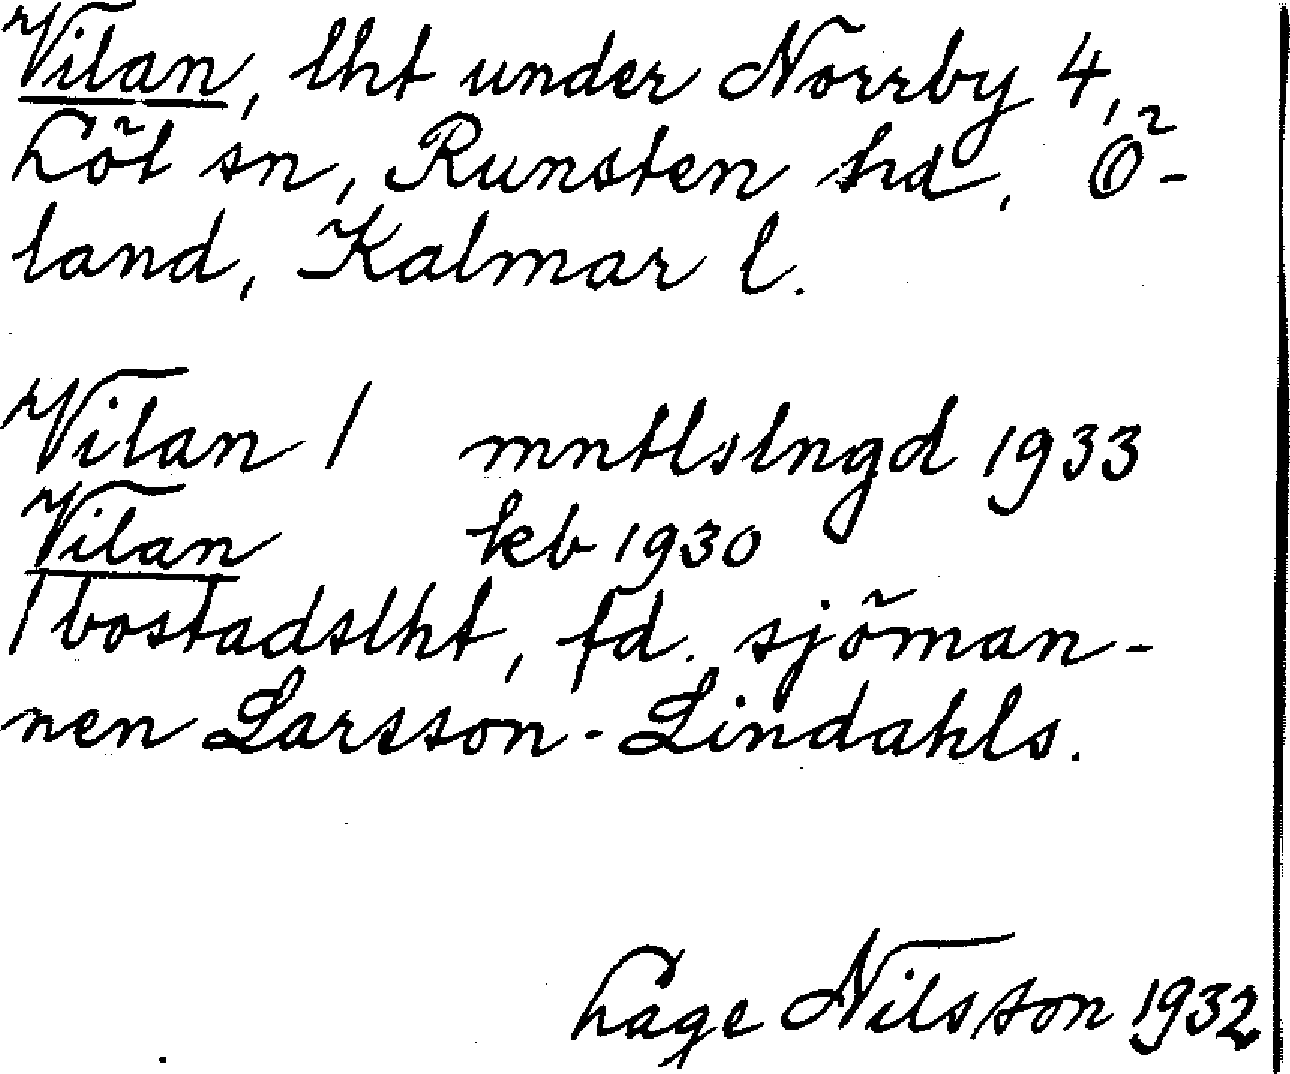 Vilan, lht under Norrby 4,
Löt sn, Runsten hd, Ö-
land, Kalmar l.
Vilan / mntlslngd 1933
Vilan kb 1930
1 bostadslht, fd. sjöman-
nen Larsson-Lindahls.
Lage Nilsson 1932